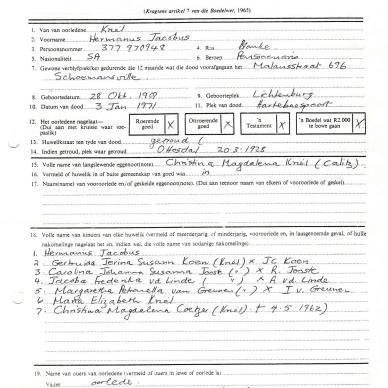 (Kragtens artikel 7 van die Boedelwet, 1965)
1. Van van oorledene Knël
2. Voorname Hermanus Jacobus
3. Persoonsnommer 377 970948 4. Ras Blanke
5. Nasionaliteit SA 6. Beroep Pensioenaris
7. Gewone verblyfplek(ke) gedurende die 12 maande wat die dood voorafgegaan het Malanstraat 696
Schoemansville
8. Geboortedatum 28 Okt. 9. Geboorteplek Lichtenburg
10. Datum van dood 3 Jan 1971 11. Plek van dood Hartebeespoort
12. Het die oorledene nagelaat:— Roerende goed X Onroerende goed X 'n Testament X 'n Boedel wat R2 000 te bowe gaan X
(Dui aan met kruisie waar toepaslik)
13. Huwelikstaat ten tyde van dood getroud (
14. Indien getroud, plek waar getroud Ottosdal 20-3-1928
15. Volle name van langslewende eggenoot(note) Christina Magdalena Knël (Calitz)
16. Vermeld of huwelik in of buite gemeenskap van goed was in
17. Naam(name) van vooroorlede en/of geskeide eggenoot(note). (Dui aan teenoor naam of vooroorlede of geskei).
18. Volle name van kinders van elke huwelik (vermeld of meerderjarig of minderjarig, vooroorlede en, in laasgenoemde geval, of hulle
nakomelinge nagelaat het en, indien wel, die volle name van sodanige nakomelinge):—
1. Hermanus Jacobus
2. Gertruida Jerina Susann Koen (Knël) x JC Koen
3. Carolina Johanna Susanna Jooste (") x R. Jooste
4. Jacoba Fredrika vd Linde (") x A. vd. Linde
5. Margaretha Petronella van Greunen (") x I v. Greunen
6. Maria Elizabeth Knël
7. Christina Magdalena Coetzer (Knël) † 4.5.1962)
19. Name van ouers van oorledene (vermeld of ouers in lewe of oorlede is):
Vader oorlede